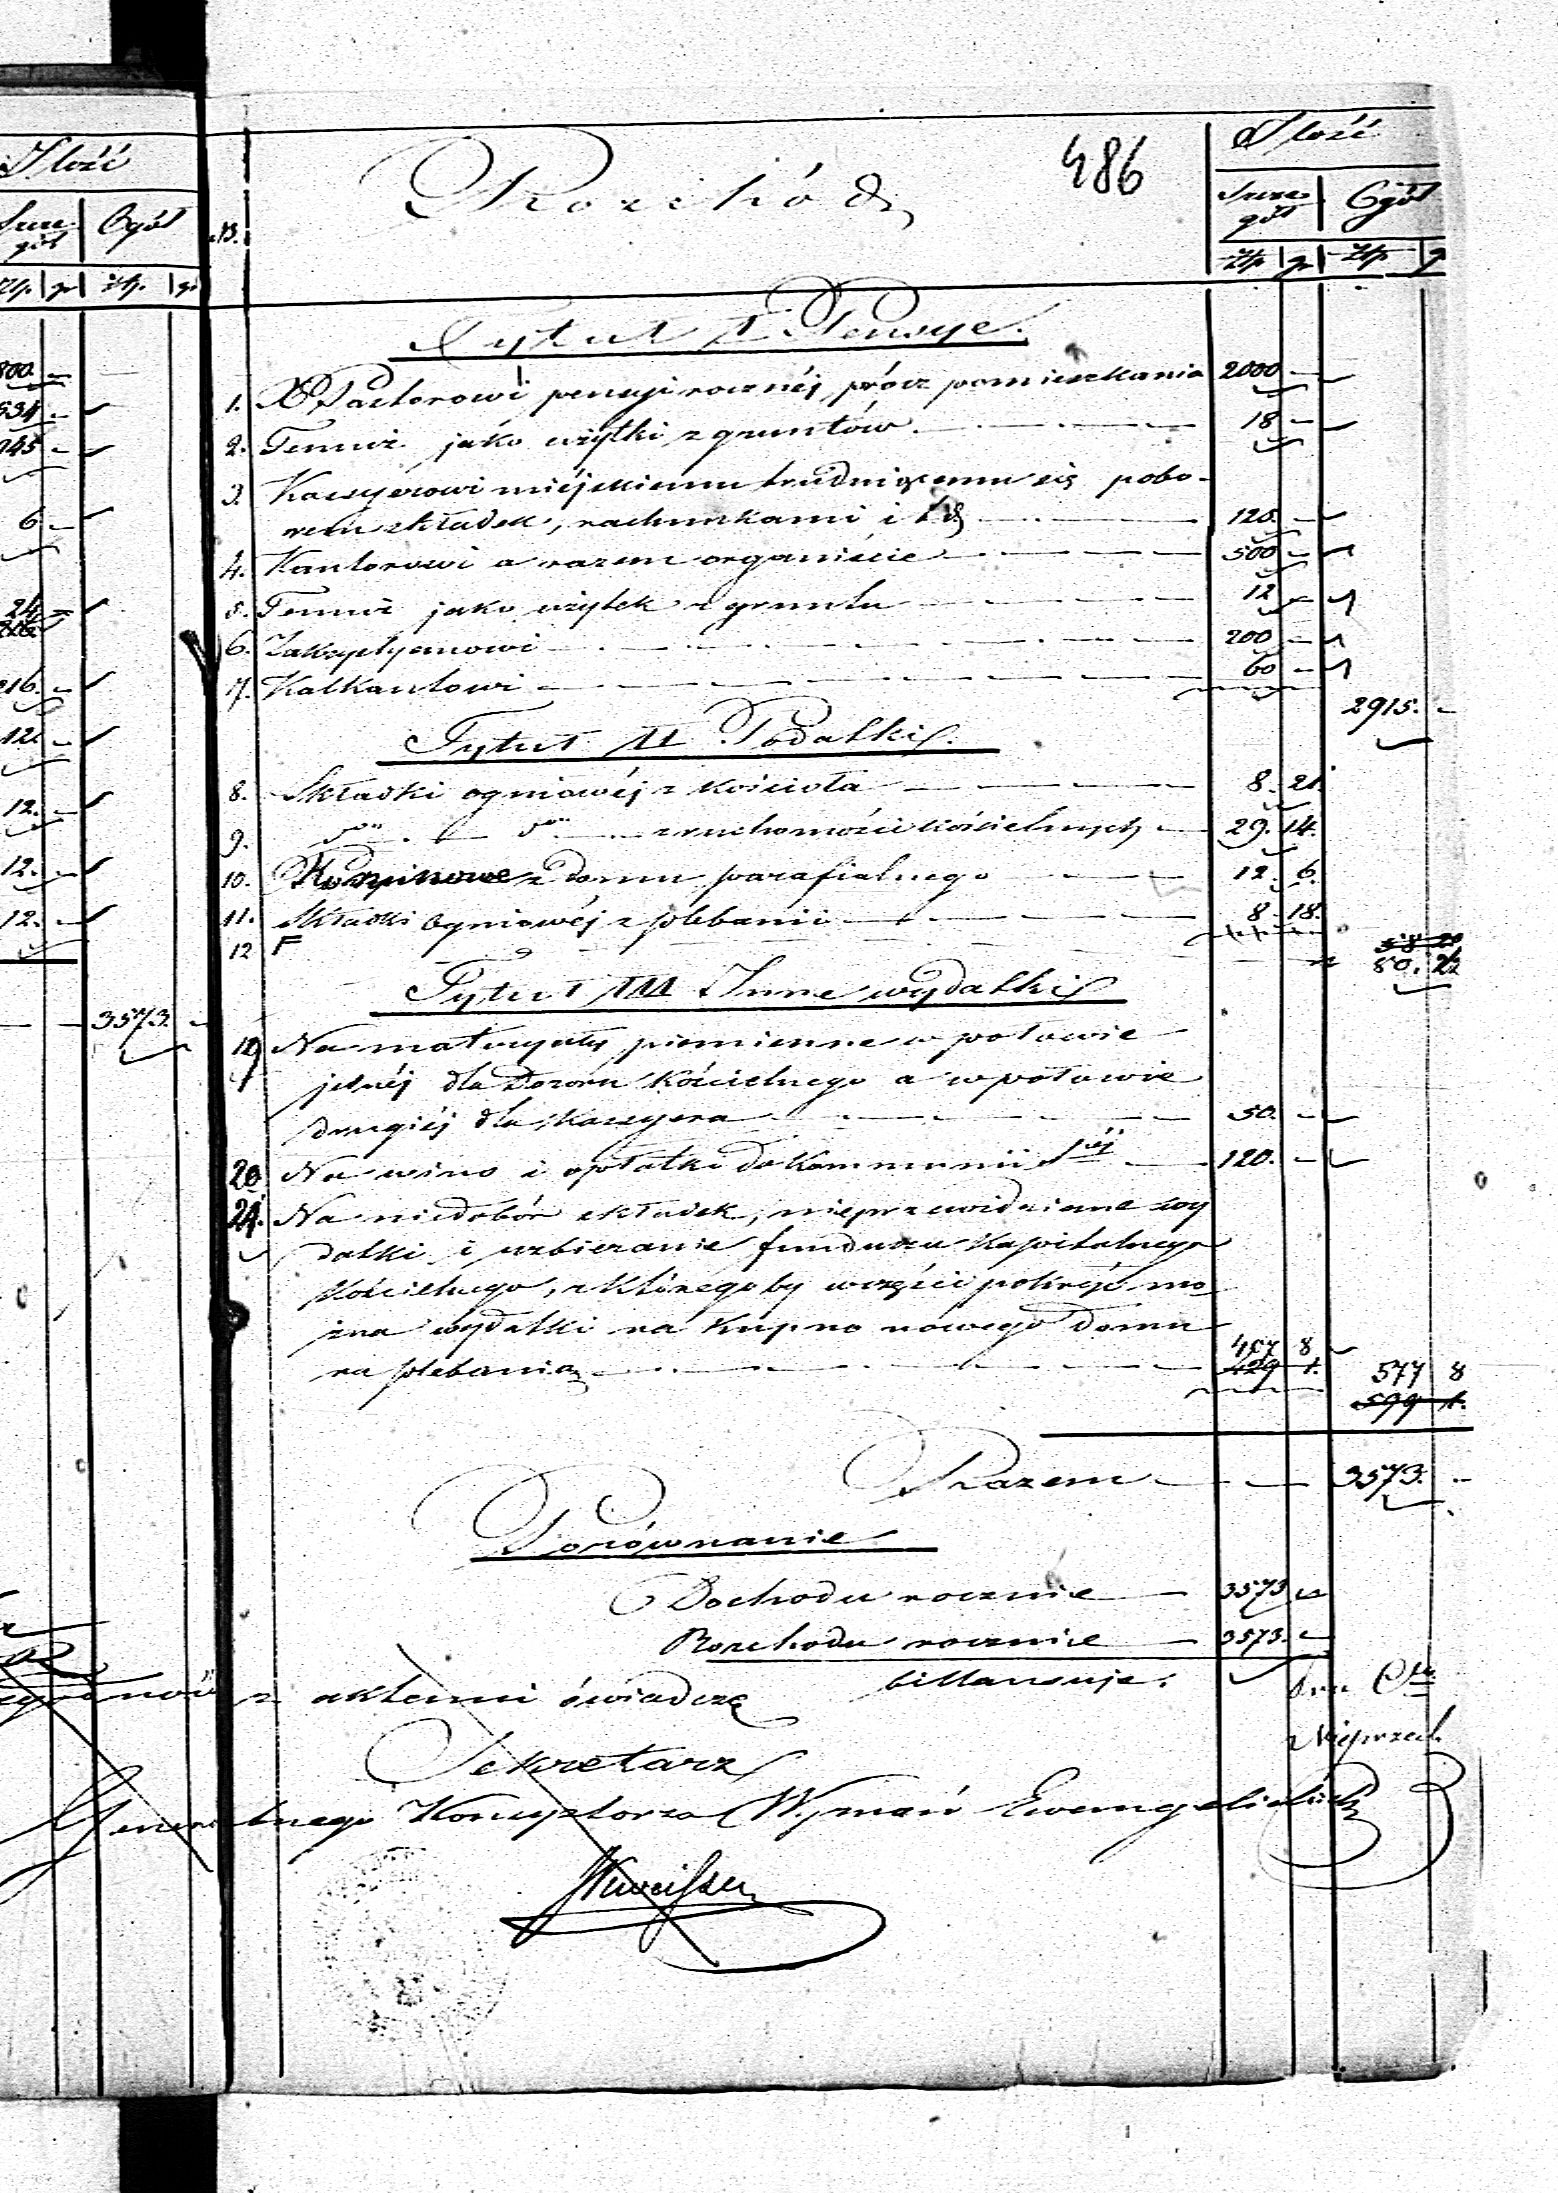 Ilość
Szcze-
gół
Ogół
Złp. gr Złp. gr
800. -
534 -
945 -
6 -
24 -
216. -
12. -
12. -
12. -
12. -
3573. -
486
Rozchód
Ilość
Szcze-
gół
Ogół
№.
Złp gr Złp g
Tytuł I Pensye.
1. X Pastorowi pensyi rocznéj, prócz pomieszkania 2000 -
2. Temuż jako użytki z gruntów 18 -
3. Kassyerowi miéjskiemu trudniącemu się pobo-
rem składek, rachunkami i t d 120. -
4. Kantorowi a razem organiście 500 -
5. Temuż jako użytek z gruntu 12 -
6. Zakrystyanowi 200 -
7. Kalkantowi 60 -
2915. -
Tytuł II Podatki.
8. Składki ogniowéj z kościoła 8. 21.
9. d° d° z ruchomości kościelnych 29. 14.
10. z domu parafialnego 12. 6.
11. Składki Ogniowéj z plebanii 8. 18.
12
58 29
80. 22
Tytuł III Inne wydatki
19 Na materyały piśmienne w połowie
jednéj dla Dozoru Kościelnego a w połowie
drugiéj dla Kassyera 50. -
20. Na wino i opłatki do Kommunii Stéj 120. -
21. Na niedobór składek, nieprzewidziane wy
datki i uzbieranie funduszu Kapitalnego
Kościelnego, z któregoby w części pokryć mo
żna wydatki na Kupno nowego domu
407 8
na plebanią 429 1. 577 8
599 1.
Razem 3573. -
Porównanie
Dochodu rocznie 3573 -
Rozchodu rocznie 3573. -
billansuje.
z aktami świadczę
Sekretarz
Generalnego Konsystorza Wyznań Ewangelickich